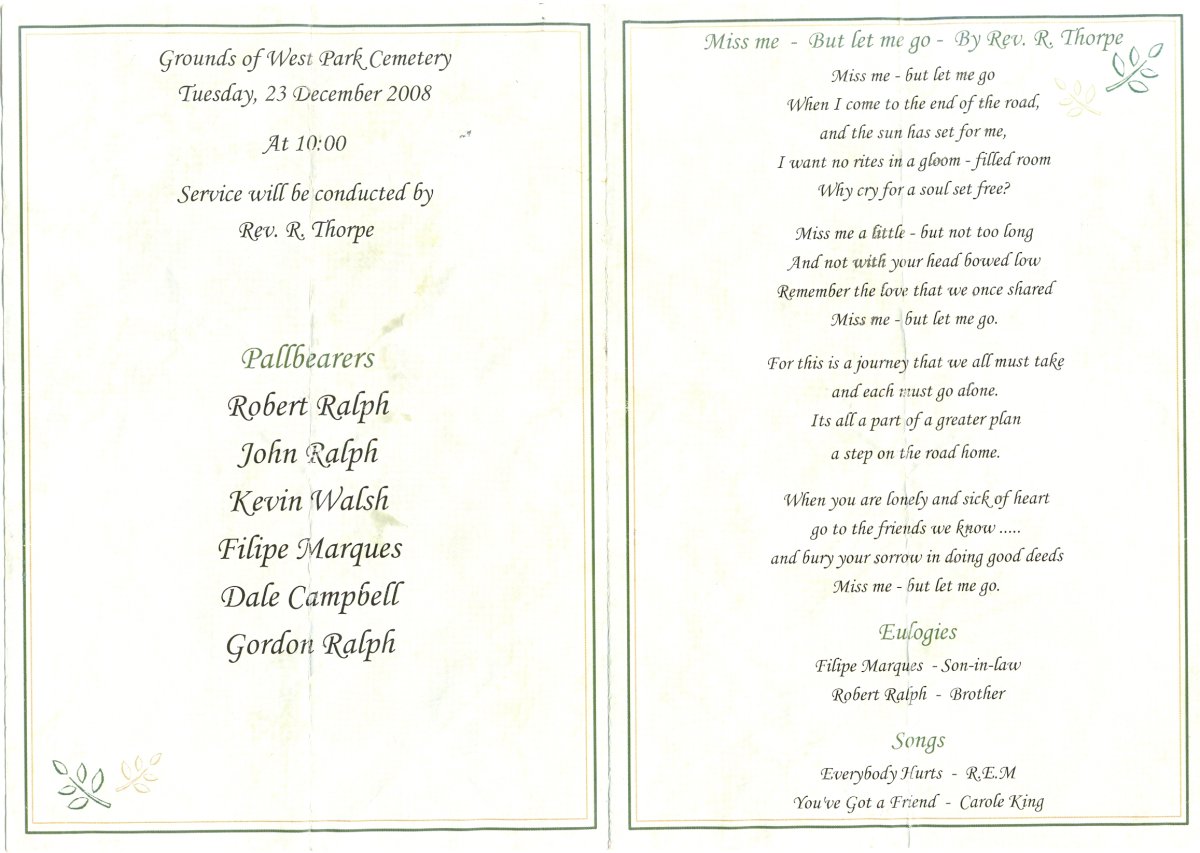 Grounds of West Park Cemetery
Tuesday, 23 December 2008
At 10:00
Service will be conducted by
Rev. R. Thorpe
Pallbearers
Robert Ralph
John Ralph
Kevin Walsh
Filipe Marques
Dale Campbell
Gordon Ralph
Miss me - But let me go - By Rev. R. Thorpe
Miss me - but let me go
When I come to the end of the road,
and the sun has set for me,
I want no rites in a gloom - filled room
Why cry for a soul set free?
Miss me a little - but not too long
And not with your head bowed low
Remember the love that we once shared
Miss me - but let me go.
For this is a journey that we all must take
and each must go alone.
Its all a part of a greater plan
a step on the road home.
When you are lonely and sick of heart
go to the friends we know .....
and bury your sorrow in doing good deeds
Miss me - but let me go.
Eulogies
Filipe Marques - Son-in-law
Robert Ralph - Brother
Songs
Everybody Hurts - R.E.M
You've Got a Friend - Carole King